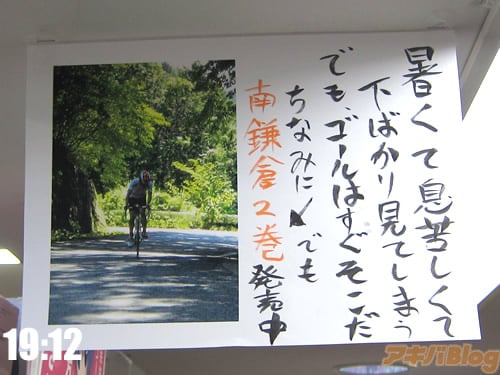 暑くて息苦しくて
下ばかり見てしまう
でも、ゴールはすぐそこだ
ちなみに〆でも
南鎌倉2巻発売中
19:12
アキバBlog